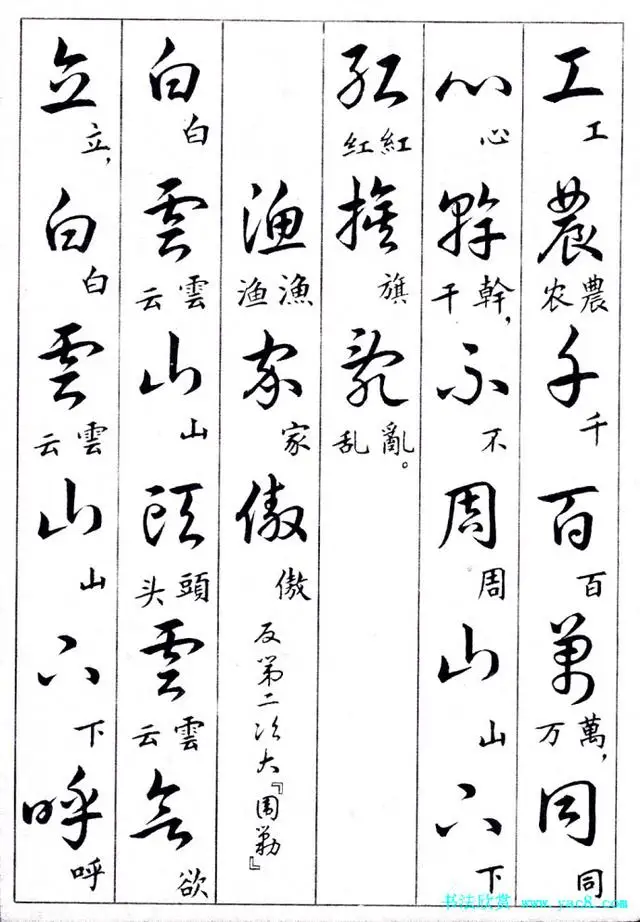 工工農農农千千百百萬萬,万同同
心心幹幹,干不不周周山山下下
紅紅红旗旗亂亂。乱
渔漁渔家家傲傲反第二次大『围剿』
白白雲雲云山山頭頭头雲雲云欲欲
立立,白白雲雲云山山下下呼呼
书法欣赏 www.yac8.com